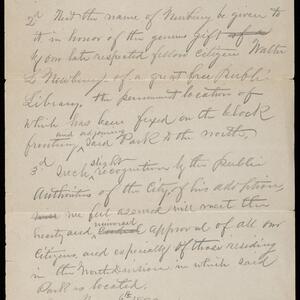 2d That the name of Newberry be given to
it in honor of the generous gift of a
by our late respected fellow citizen Walter
L Newberry of a great free Public
Library, the permanent location of
which has been fixed on the block
fronting and adjoining said Park to the north,
3d Such slight recognition by the Public
Authorities of the City of his adoption,
we feel assured will meet the
hearty and unanimous approval of all our
Citizens, and especially of those residing
in the North Division in which said
Park is located.